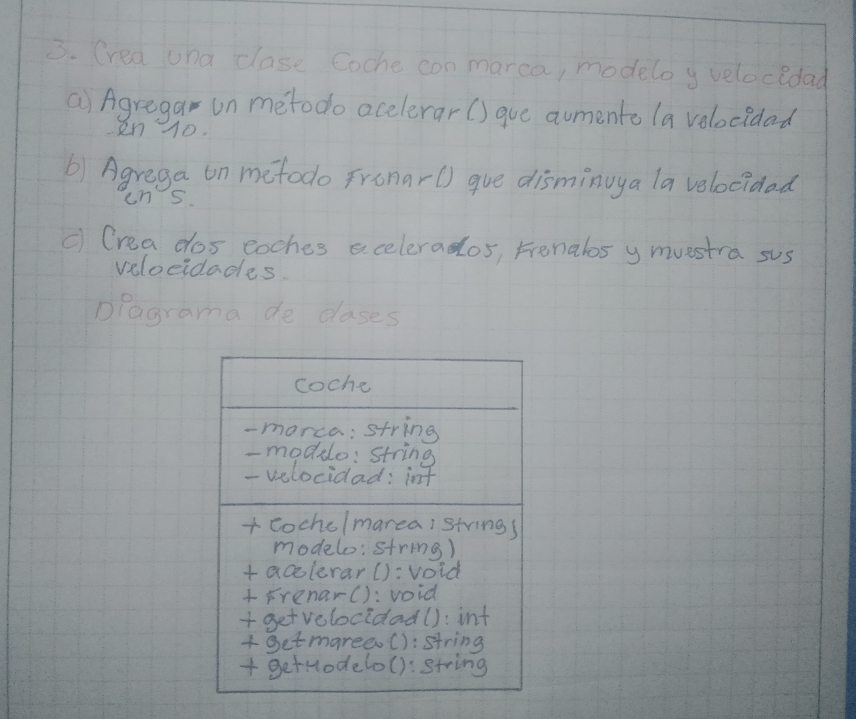 3. Crea una clase Coche con marca, modelo y velocidad
a) Agregar un método acelerar() que aumente la velocidad
en 10.
b) Agrega un método Frenar() que disminuya la velocidad
en 5.
c) Crea dos coches acelerados, Frenalos y muestra sus
velocidades.
Diagrama de clases
coche
- marca: string
- modelo: string
- velocidad: int
+ coche(marca: string,
modelo: string)
+ acelerar(): void
+ Frenar(): void
+ getvelocidad(): int
+ getmarca(): string
+ getModelo(): string